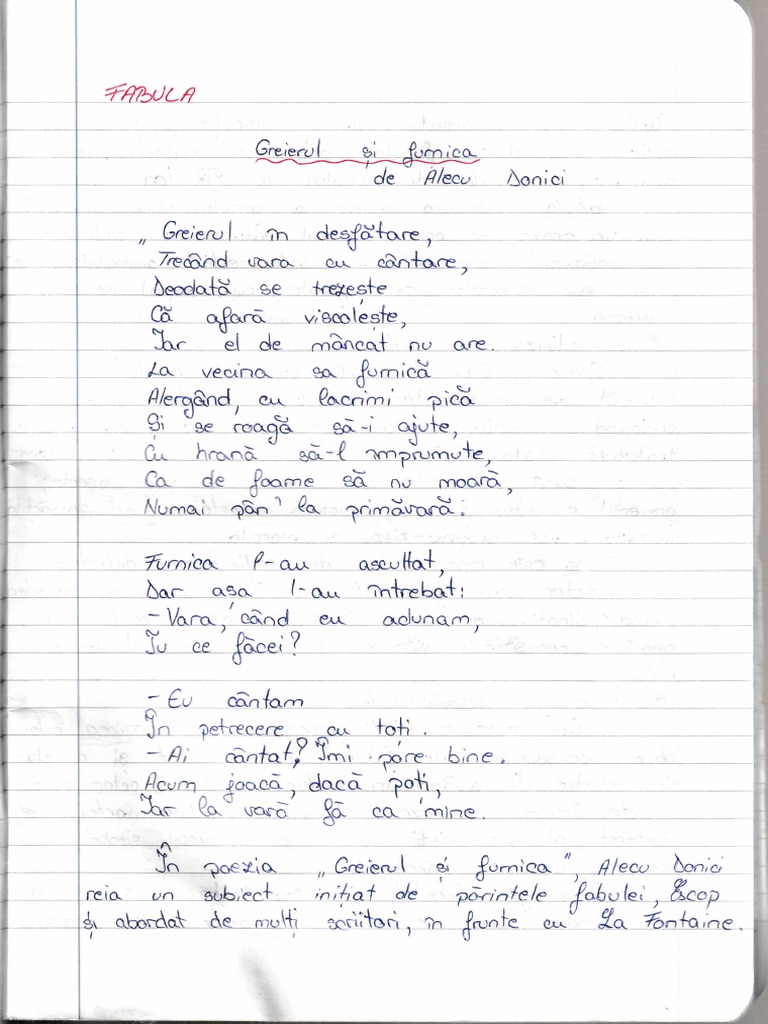 FABULA
Greierul și furnica
de Alecu Donici
„Greierul în desfătare,
Trecând vara cu cântare,
Deodată se trezește
Că afară viscolește,
Iar el de mâncat nu are.
La vecina sa furnică
Alergând, cu lacrimi pică
Și se roagă să-i ajute,
Cu hrană să-l împrumute,
Ca de foame să nu moară,
Numai pân' la primăvară.
Furnica l-au ascultat,
Dar așa l-au întrebat:
- Vara, când eu adunam,
Tu ce făcei?
- Eu cântam
În petrecere cu toți.
- Ai cântat? Îmi pare bine.
Acum joacă, dacă poți,
Iar la vară fă ca mine.
În poezia „Greierul și furnica”, Alecu Donici
reia un subiect inițiat de părintele fabulei, Esop
și abordat de mulți scriitori, în frunte cu La Fontaine.